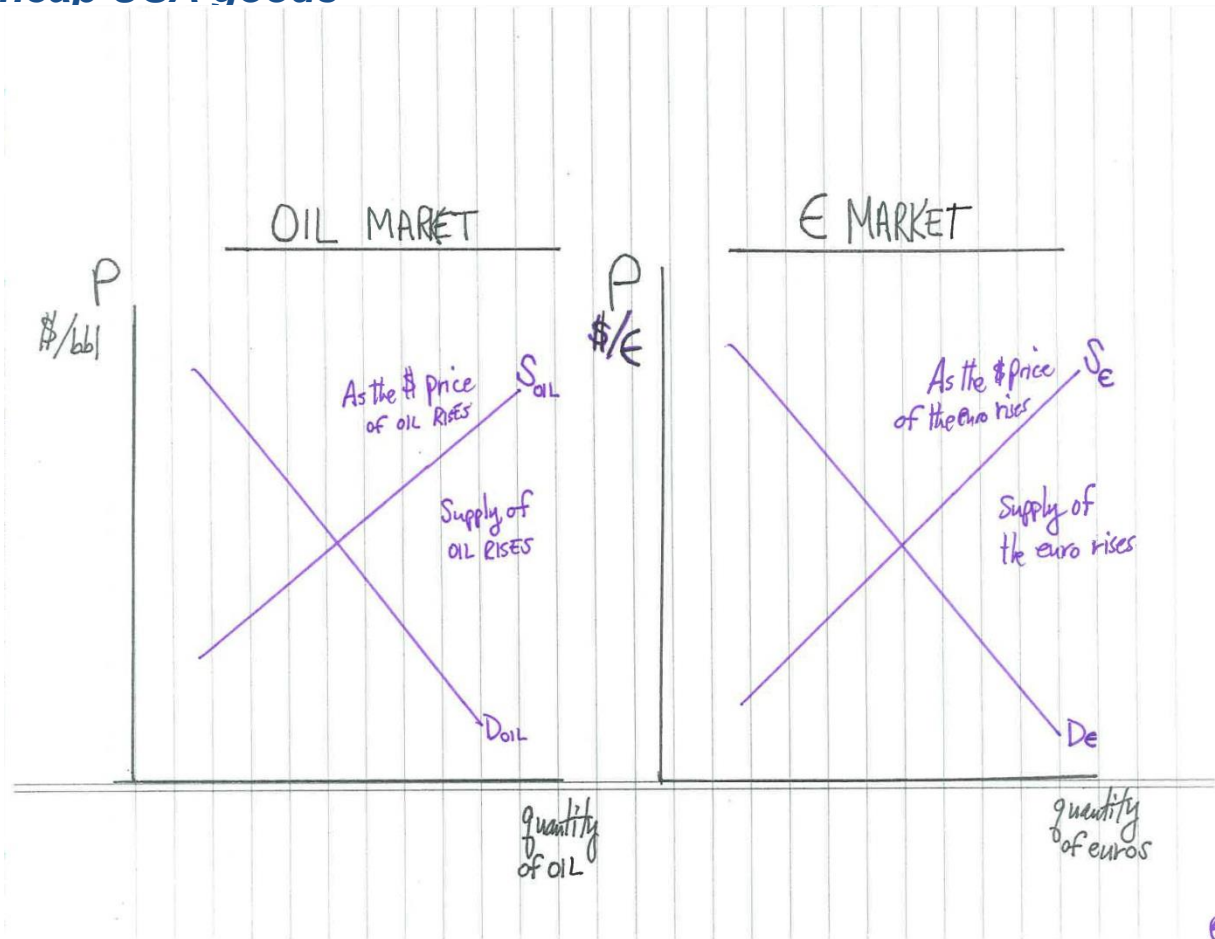 goods
OIL MARKET
P
$/bbl
As the $ price
of OIL RISES
S OIL
Supply of
OIL RISES
D OIL
quantity
of OIL
€ MARKET
P
$/€
As the $ price
of the euro rises
S €
Supply of
the euro rises
D €
quantity
of euros